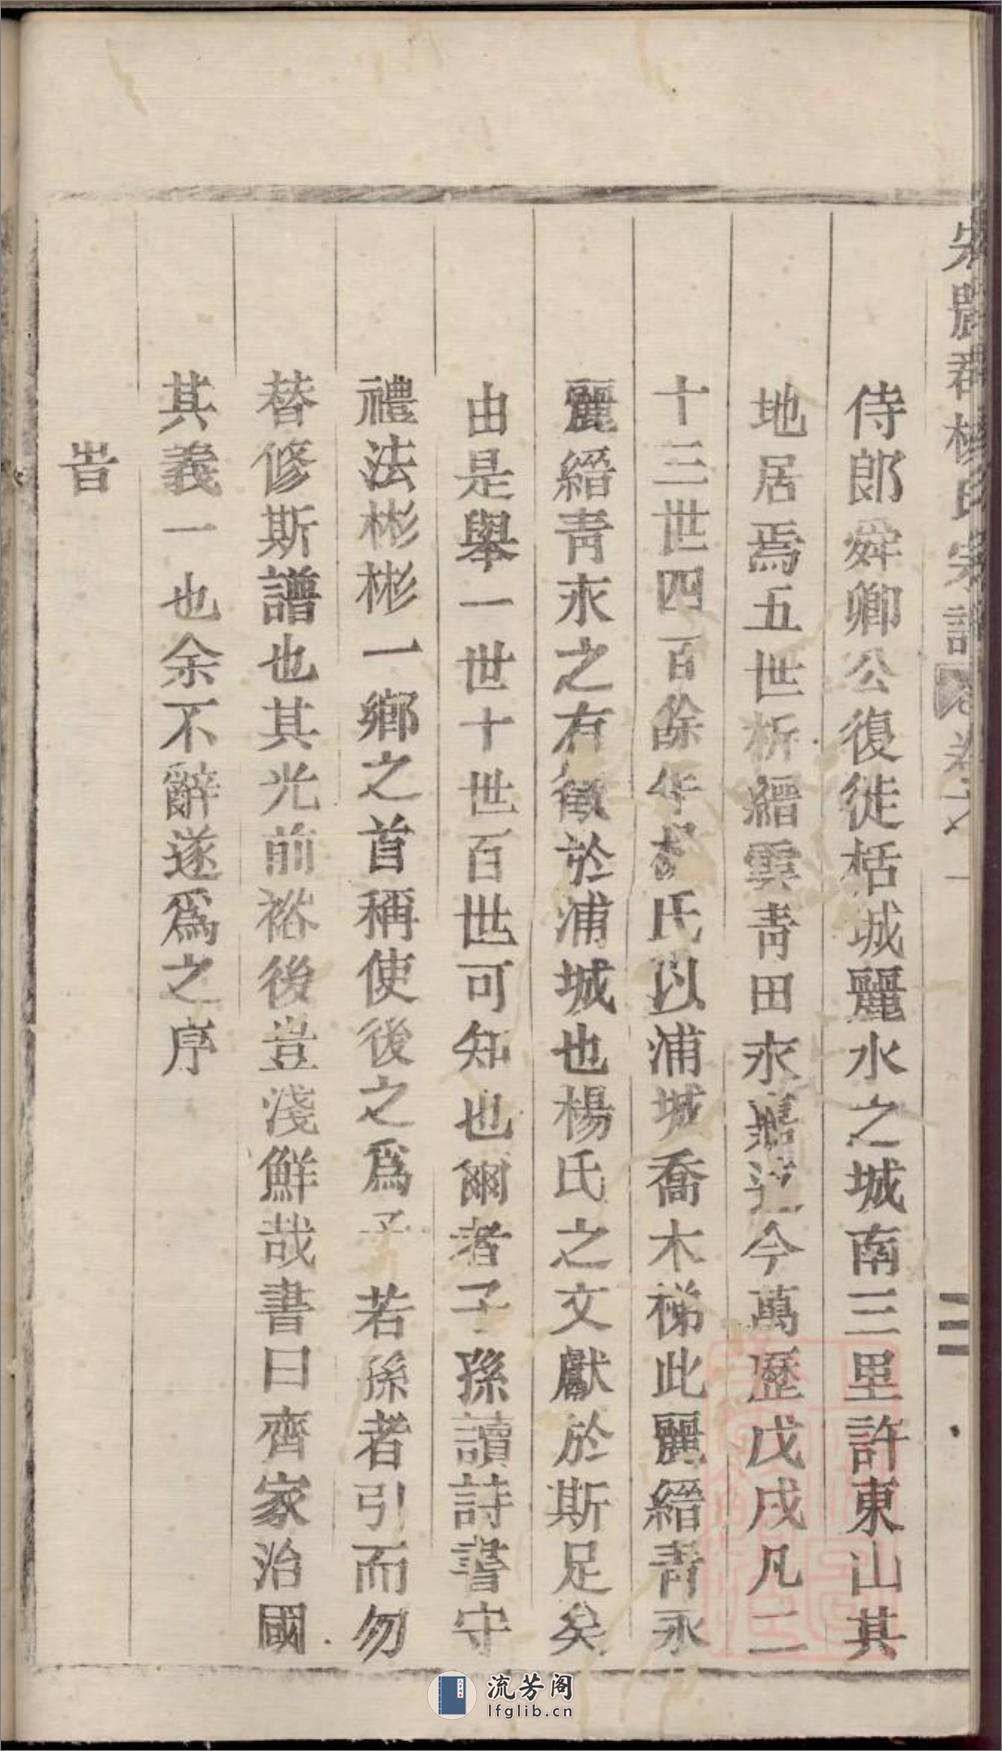 侍郎舜卿公復徙栝城麗水之城南三里許東山其
地居焉五世析縉雲青田永嘉迄今萬歷戊戌凡二
十三世四百餘年楊氏以浦城喬木梯此麗縉青永
麗縉青永之有徵於浦城也楊氏之文獻於斯足矣
由是舉一世十世百世可知也爾者子孫讀詩書守
禮法彬彬一鄉之首稱使後之爲子若孫者引而勿
替修斯譜也其光前裕後豈淺鮮哉書曰齊家治國
其義一也余不辭遂爲之序
旹
流芳阁
lfglib.cn